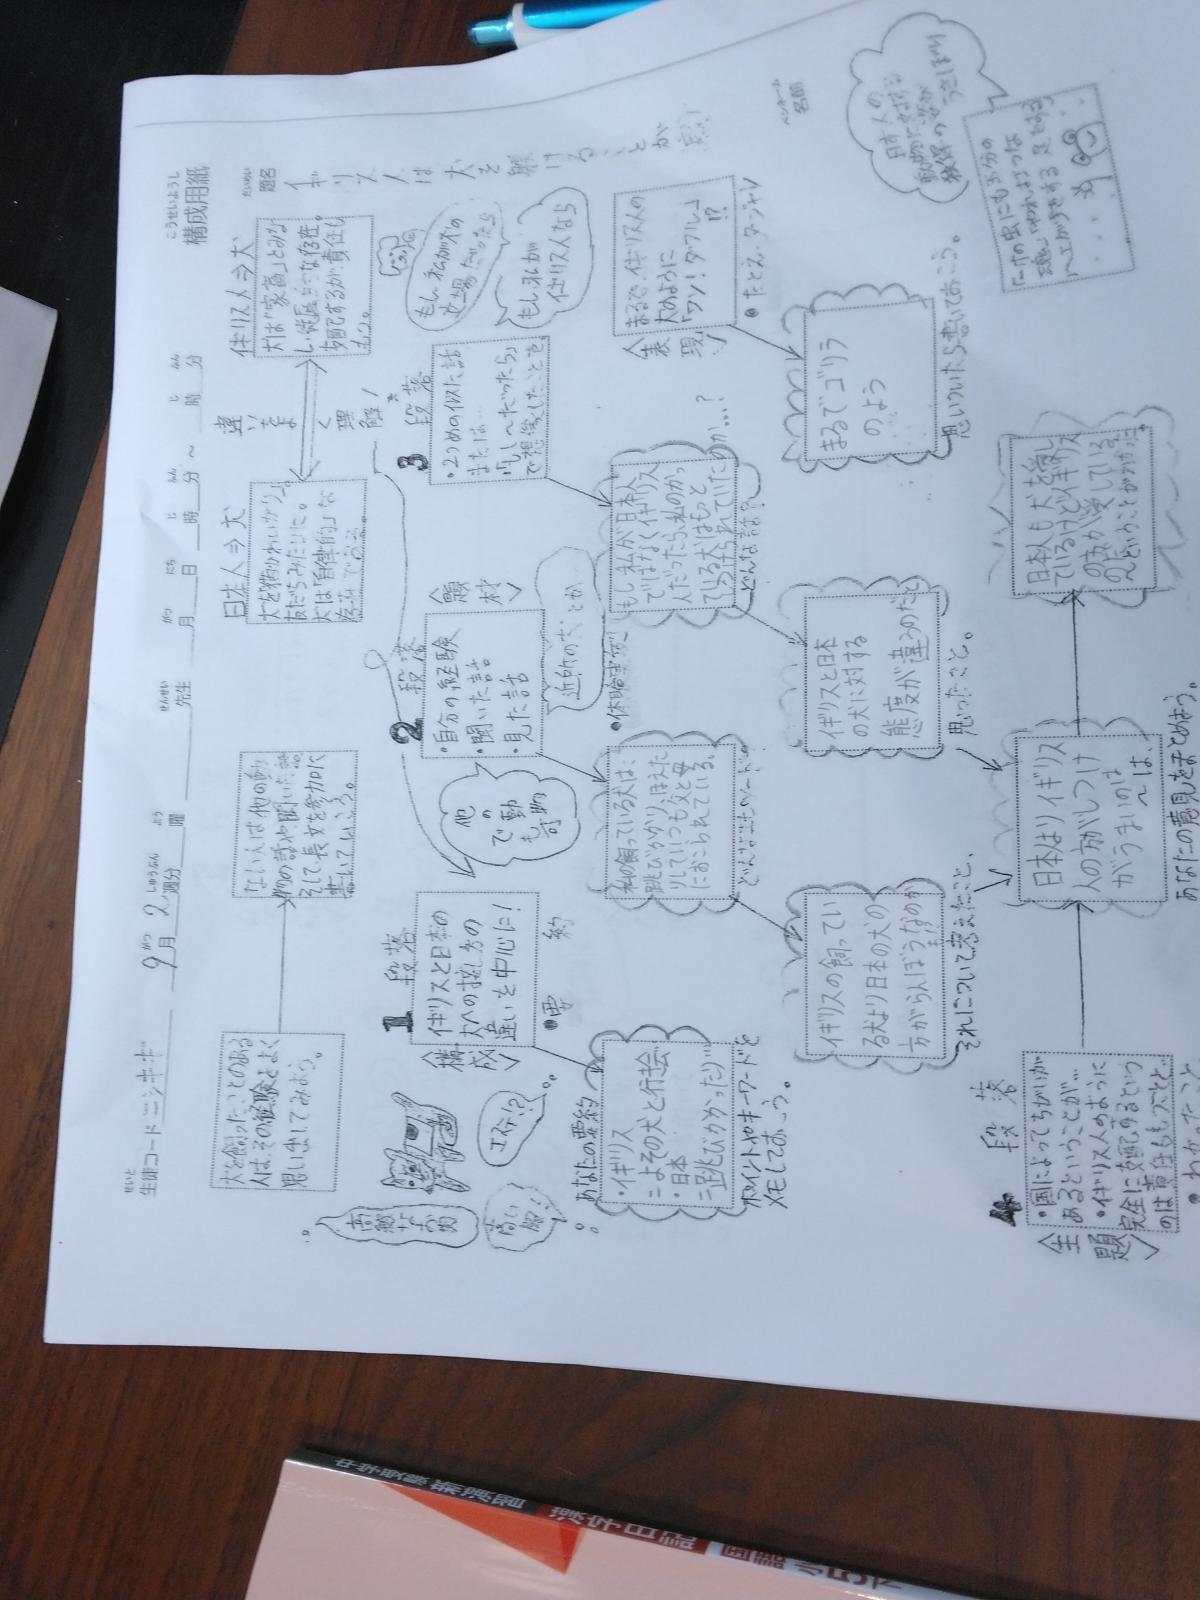 構成用紙
こうせいようし
生徒コード ニシキギ
9月2週分 曜 先生 月 日 時 分 ～ 時 分
題名
イギリス人は犬を躾けることが
ペンネーム
名前
犬を飼ったことのある
人は、その経験をよく
思い出してみよう。
ない人は他の動
物の話や、聞いた話
そして長文を参加に
書いていこう。
日本人⇒犬
友だちみたいに。
犬は「自律的」な
違いをよく理解！
イギリス人⇒犬
犬は「家畜」とみな
し、従属的な存在。
支配するが、責任も
もつ。
1 段落
〈構成〉
イギリスと日本の
犬への接し方の
違いを中心に！
●要約
エスケ!?
2 段落
〈題材〉
・自分の経験
・聞いた話
・見た話
他の動物でも可
近所の犬とか
●体験実例
3 段落
・2つめの似た話
または…
「もし～だったら」
で想像したことを。
もし、私が犬の立場だったら
もし、私がイギリス人なら
〈表現〉
まるで、イギリス人の
犬のように
「ワン！ダフル」
!?
●たとえ・ダジャレ
あなたの要約
・イギリス
＝よその犬と行会
・日本
＝跳びかかったり
ポイントやキーワードを
メモしておこう。
私の飼っている犬は、
跳びかかり、ほえた
りしていつも父と母
におこられている。
どんなエピソード？
もし、私が日本人
ではなくイギリス
人だったら、私のかっ
ている犬はもっと
しつけられていた
のか…？
どんな話？
まるでゴリラ
のよう
思いついたら書いておこう。
イギリスの飼ってい
る犬より日本の犬の
方がらんぼうなのかも!?
それについて考えたこと、
イギリスと日本
の犬に対する
態度が違うのだと
思ったこと。
日本人の
動物に対する
「一寸の虫にも五分の
魂」
4 段落
〈主題〉
・国によってちがいが
あるということが…
・イギリス人のように
完全に支配するという
のは責任もつことと。
●わかったこと
日本よりイギリス
人の方がしつけ
がうまいのは
～は、
あなたの意見をまとめよう。
日本人も犬を愛し
ているけどイギリス
の方が愛している
んだということがわかった。
中学受験 新演習
漢字日記
国語
小5下